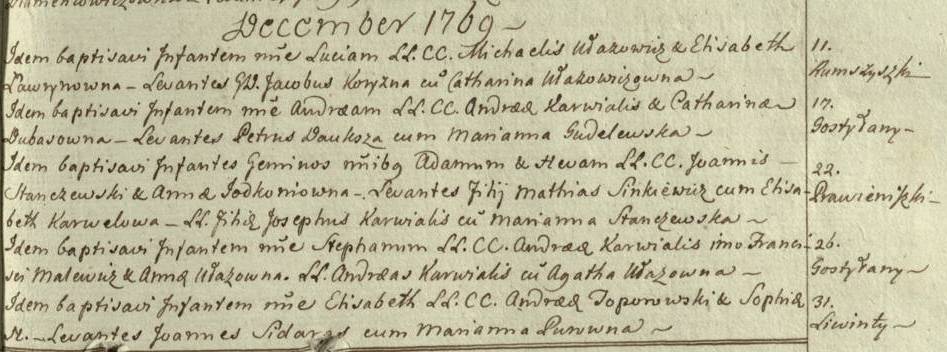 December 1769
Idem baptisavi Infantem nr̄e Luciam LL. CC. Michaelis Ułazowicz & Elisabeth 11.
Ławrynowna – Levantes GD. Jacobus Koryzna cū Catharina Ułazowiczowna – Rumszyszki –
Idem baptisavi Infantem nr̄e Andream LL. CC. Andreæ Karwialis & Catharinæ 17.
Dubasowna – Levantes Petrus Dauksza cum Marianna Gudelewska – Gostyłany –
Idem baptisavi Infantes Geminos nr̄ibq Adamum & Hevam LL. CC. Joannis – 22.
Stanczewski & Annæ Jodkoniowna – Levantes Filij Mathias Sinkiewicz cum Elisa- Prawieniszki –
beth Karwelowa – LL. Filiæ Josephus Karwialis cū Marianna Stanczewska –
Idem baptisavi Infantem nr̄e Stephanum LL. CC. Andreæ Karwialis imo Franci- 26.
sci Malewicz & Annæ Ułazowna. LL. Andreas Karwialis cū Agatha Ułazowna – Gostyłany –
Idem baptisavi Infantem nr̄e Elisabeth LL. CC. Andreæ Toporowski & Sophiæ 31.
N. – Levantes Joannes Sidaras cum Marianna Purowna – Liwinty –